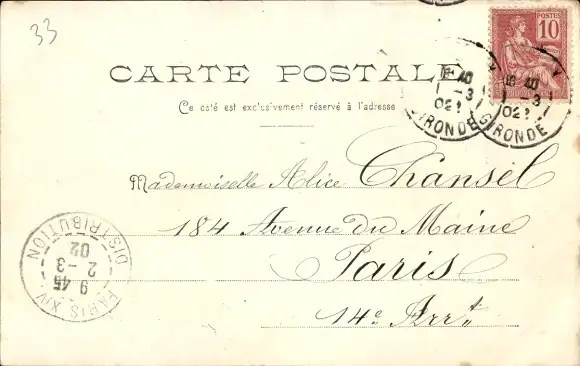 33
POSTES
10
CARTE POSTALE
Ce coté est exclusivement réservé à l'adresse
40
1 -3
02
GIRONDE
40
-3
02
GIRONDE
Mademoiselle Alice Chansel
184 Avenue du Maine
Paris
14e Arrt
PARIS XIV
9 45
2 -3
02
DISTRIBUTION